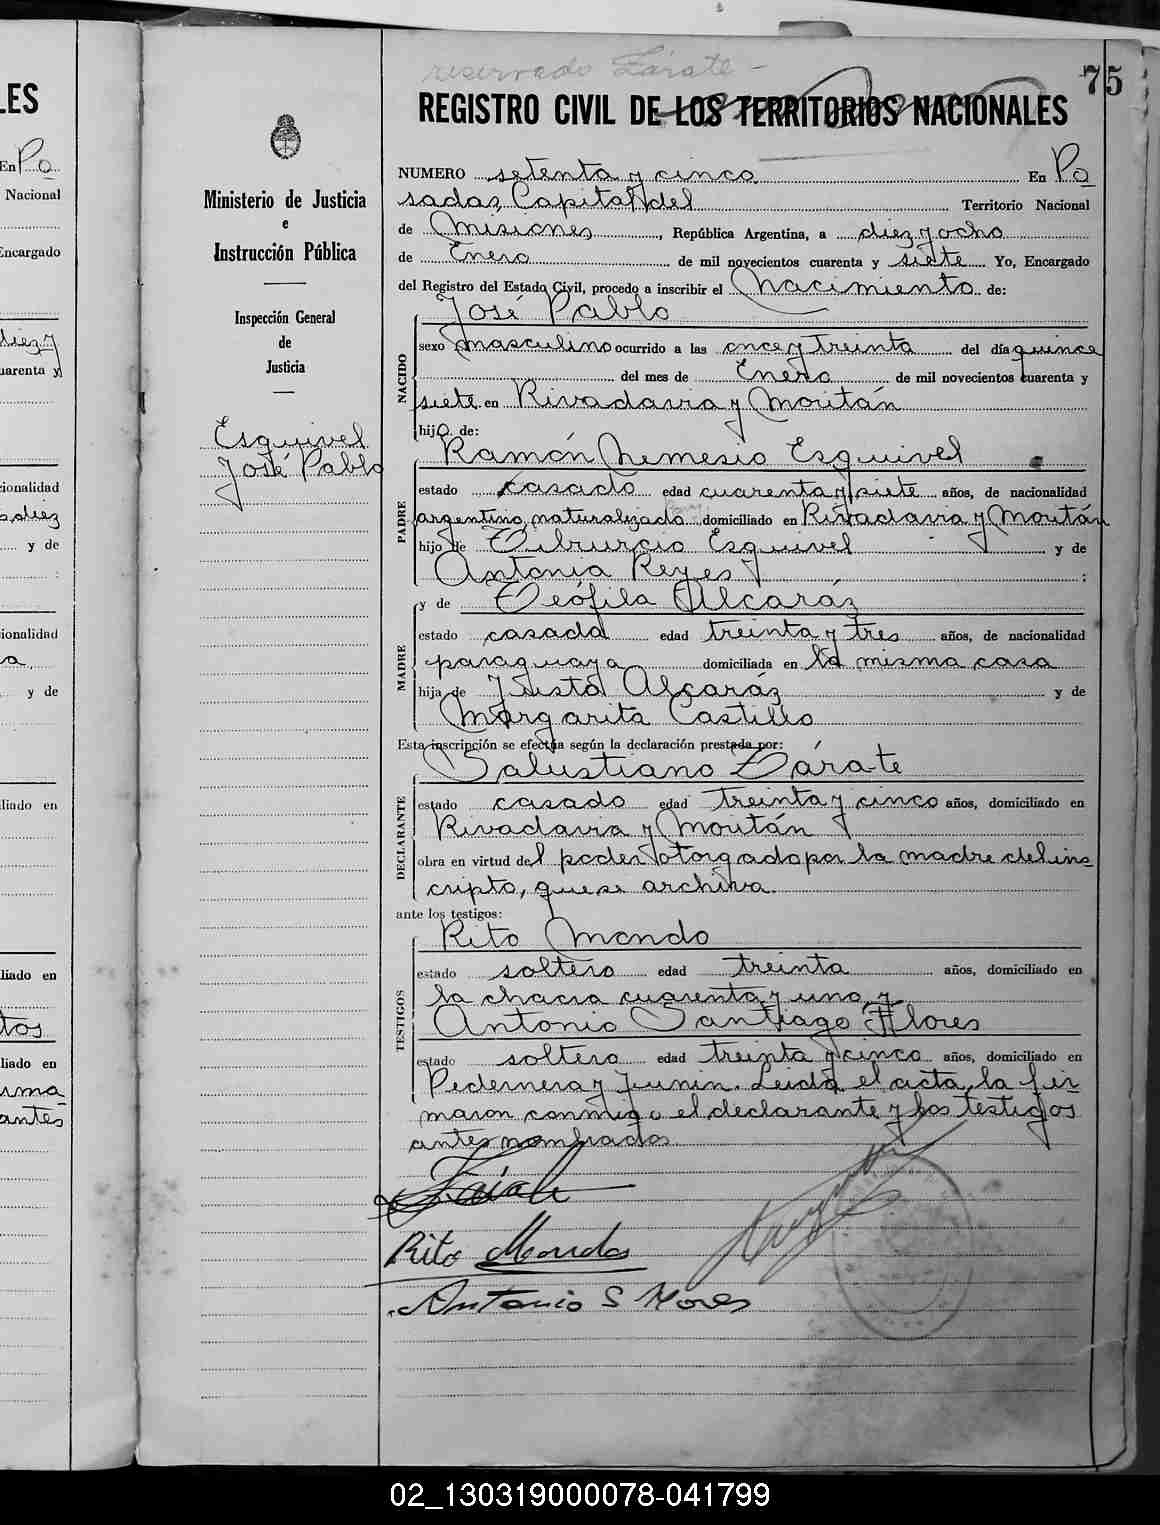 LES
En Po
Nacional
Encargado
diez y
uarenta y
cionalidad
diez
y de
:
ionalidad
a,
y de
liado en
liado en
tos
liado en
rma
antes
Ministerio de Justicia
e
Instrucción Pública
Inspección General
de
Justicia
Esquivel
José Pablo
reservado Zárate -
75
REGISTRO CIVIL DE LOS TERRITORIOS NACIONALES
NUMERO setenta y cinco En Po
sadas, Capital del Territorio Nacional
de Misiones, República Argentina, a diez y ocho
de Enero de mil novecientos cuarenta y siete Yo, Encargado
del Registro del Estado Civil, procedo a inscribir el Nacimiento de:
José Pablo
NACIDO
sexo masculino ocurrido a las once y treinta del día quince
del mes de Enero de mil novecientos cuarenta y
siete en Rivadavia y Moritán
hijo de:
Ramón Nemesio Esquivel
PADRE
estado casado edad cuarenta y siete años, de nacionalidad
argentino naturalizado domiciliado en Rivadavia y Moritán
hijo de Tiburcio Esquivel y de
Antonia Reyes :
y de Teófila Alcaráz
MADRE
estado casada edad treinta y tres años, de nacionalidad
paraguaya domiciliada en la misma casa
hija de Justo Alcaráz y de
Margarita Castillo
Esta inscripción se efectúa según la declaración prestada por:
Salustiano Zárate
DECLARANTE
estado casado edad treinta y cinco años, domiciliado en
Rivadavia y Moritán
obra en virtud del poder otorgado por la madre del ins
cripto, que se archiva.
ante los testigos:
Rito Mendo
TESTIGOS
estado soltero edad treinta años, domiciliado en
la chacra cuarenta y uno y
Antonio Santiago Flores
estado soltero edad treinta y cinco años, domiciliado en
Pedernera y Junin. Leida el acta, la fir
maron conmigo el declarante y los testigos
antes nombrados.
Zárate
Rito Mendo
Antonio S Flores
02_130319000078-041799